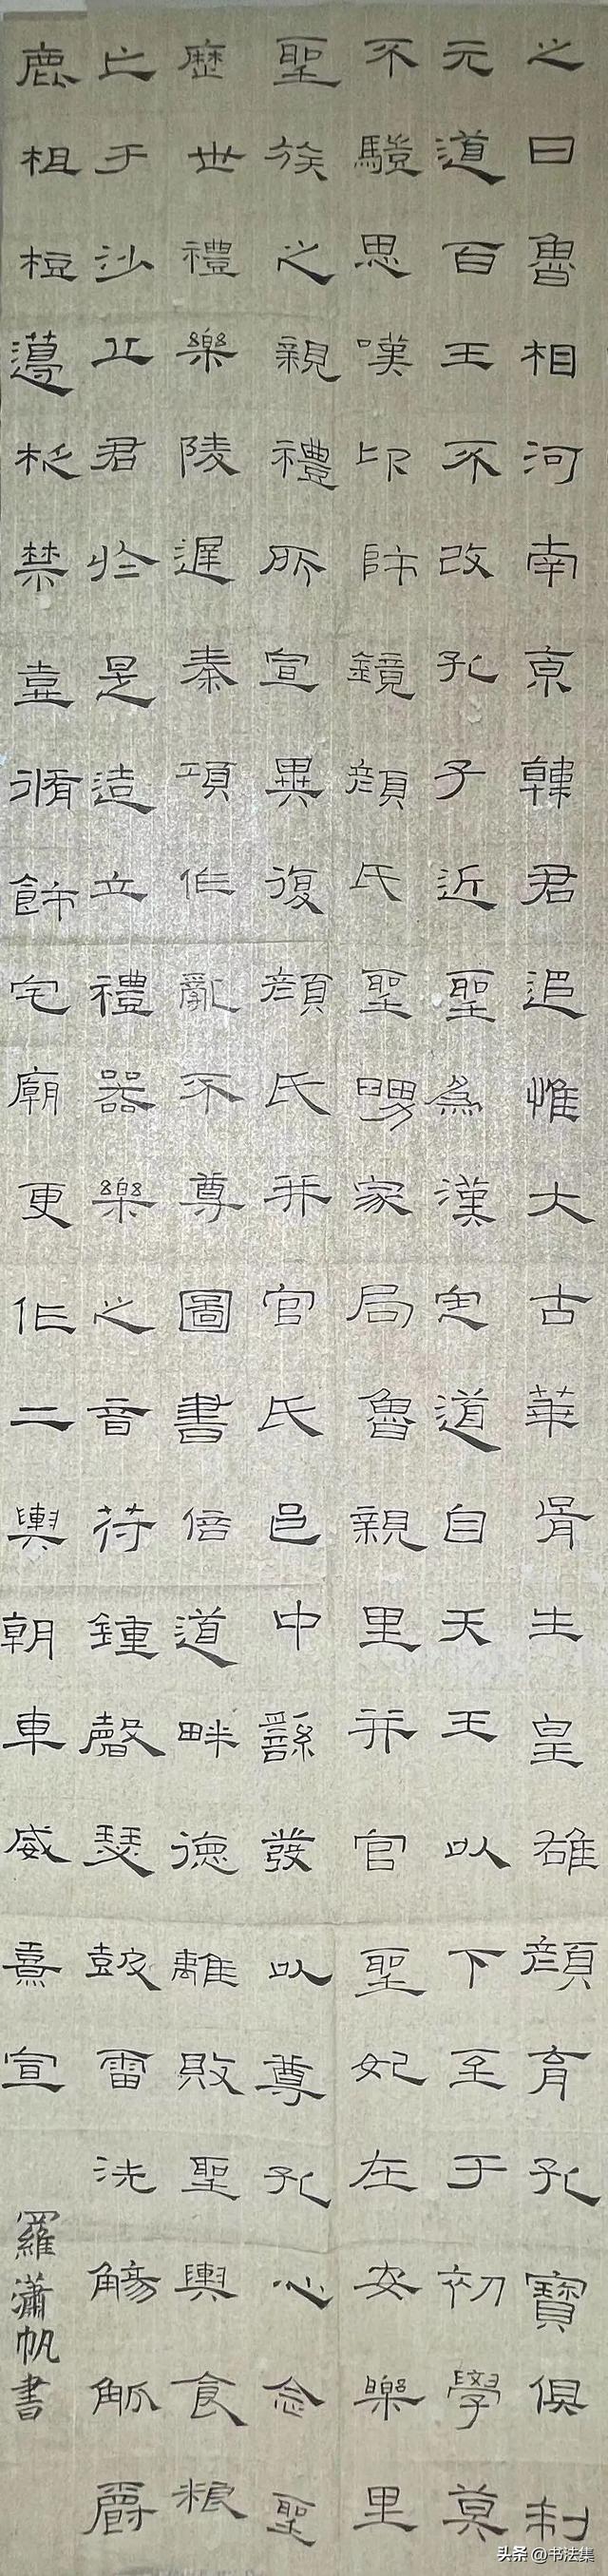 之曰魯相河南京韓君追惟大古華胥生皇雄顏育孔寶俱制
元道百王不改孔子近聖為漢定道自天王以下至于初學莫
不驥思嘆卬師鏡顏氏聖舅家居魯親里并官聖妃在安樂里
聖族之親禮所宣異復顏氏并官氏邑中繇發以尊孔心念聖
歷世禮樂陵遲秦項作亂不尊圖書倍道畔德離敗聖輿食粮
亡于沙丘君於是造立禮器樂之音符鍾磬瑟鼓雷洗觴觚爵
鹿柤梪籩柉禁壺脩飾宅廟更作二輿朝車威熹宣
羅瀟帆書
头条 @书法集